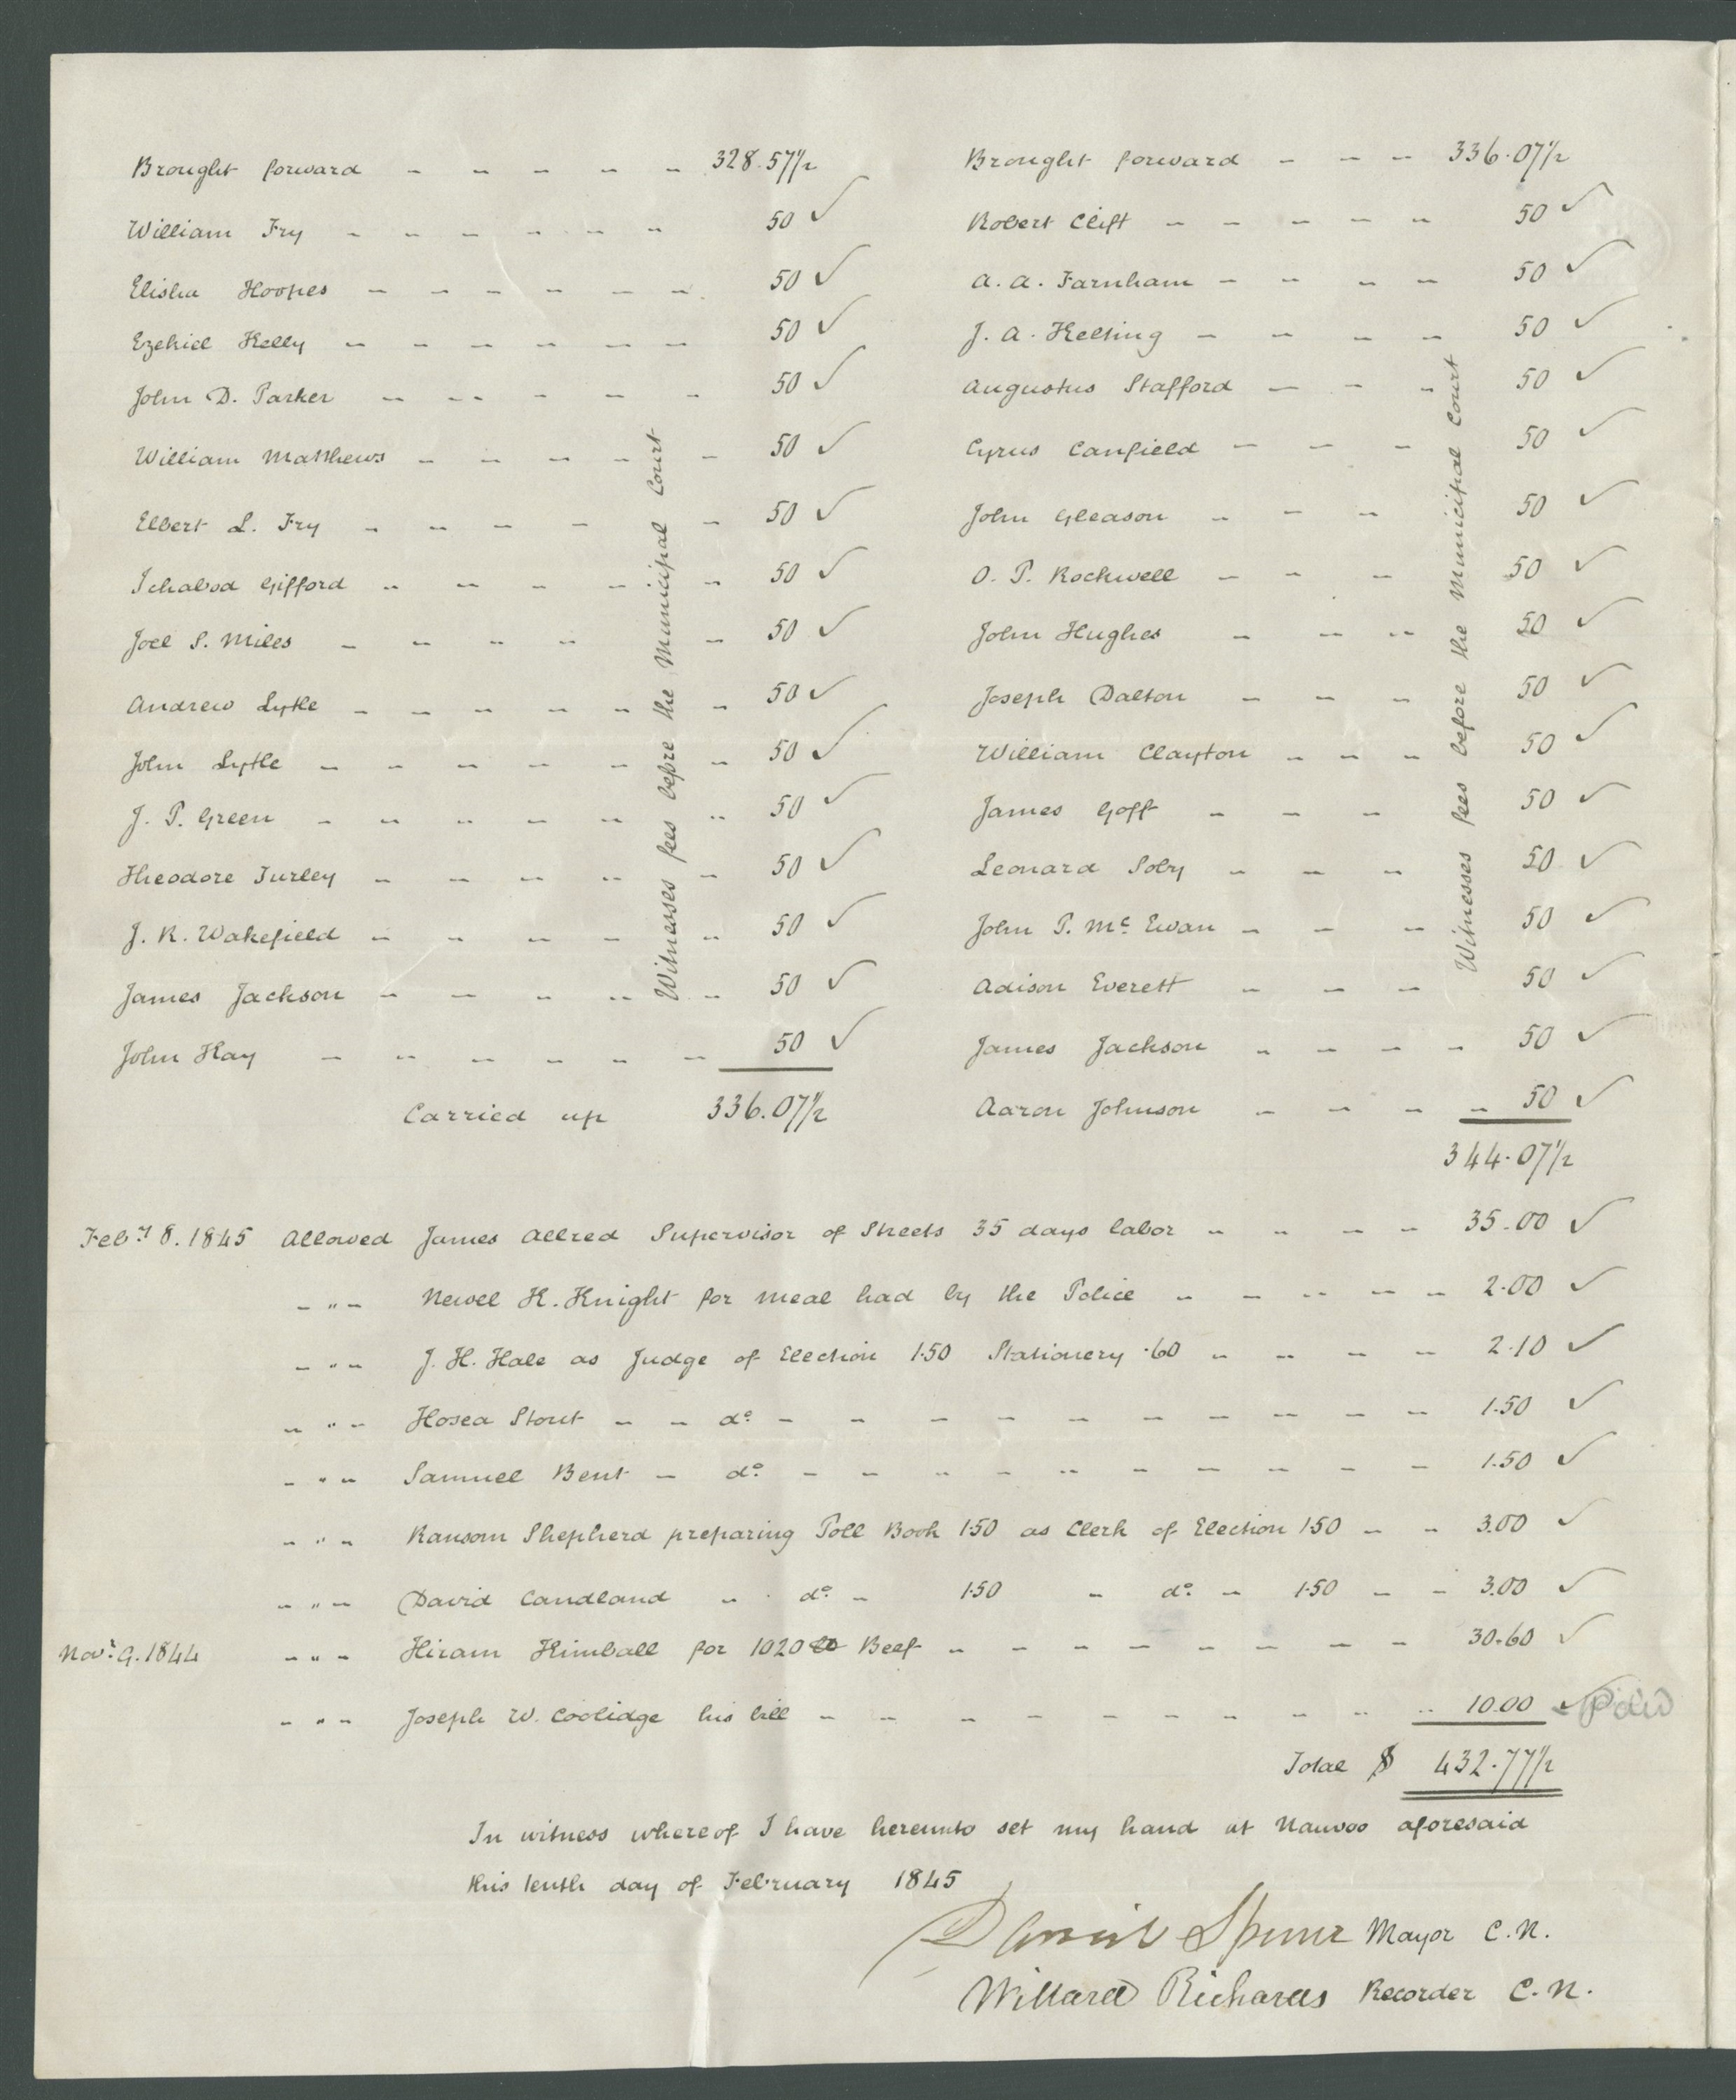 Brought forward - - - - - 328.57½
William Fry - - - - - - 50 ✓
Elisha Hoopes - - - - - - 50 ✓
Ezekiel Kelly - - - - - - 50 ✓
John D. Parker - - - - - - 50 ✓
William Matthews - - - - - 50 ✓
Elbert L. Fry - - - - - 50 ✓
Ichabod Gifford - - - - - 50 ✓
Joel S. Miles - - - - - 50 ✓
Andrew Lytle - - - - - - 50 ✓
John Lytle - - - - - - 50 ✓
J. P. Green - - - - - - 50 ✓
Theodore Turley - - - - - 50 ✓
J. R. Wakefield - - - - - 50 ✓
James Jackson - - - - - 50 ✓
John Kay - - - - - - 50 ✓
Carried up 336.07½
Witnesses fees before the Municipal Court
Brought forward - - - 336.07½
Robert Clift - - - - - 50 ✓
A. A. Farnham - - - - 50 ✓
J. A. Kelting - - - - 50 ✓
Augustus Stafford - - - 50 ✓
Cyrus Canfield - - - 50 ✓
John Gleason - - - 50 ✓
O. P. Rockwell - - - 50 ✓
John Hughes - - - 50 ✓
Joseph Dalton - - - 50 ✓
William Clayton - - - 50 ✓
James Goff - - - 50 ✓
Leonard Soby - - - 50 ✓
John P. Mc. Ewan - - - 50 ✓
Adison Everett - - - 50 ✓
James Jackson - - - - 50 ✓
Aaron Johnson - - - - 50 ✓
344.07½
Witnesses fees before the Municipal Court
Feby 8. 1845 Allowed James Allred Supervisor of Streets 35 days labor - - - - 35.00 ✓
- " - Newel K. Knight for meal had by the Police - - - - - 2.00 ✓
- " - J. H. Hale as Judge of Election 1.50 Stationery .60 - - - - 2.10 ✓
- " - Hosea Stout - - do - - - - - - - - - - 1.50 ✓
- " - Samuel Bent - do - - - - - - - - - - 1.50 ✓
- " - Ransom Shepherd preparing Poll Book 1.50 as Clerk of Election 1.50 - - 3.00 ✓
- " - David Candland - do - 1.50 - do - 1.50 - - 3.00 ✓
Novr 9. 1844 - " - Hiram Kimball for 1020 lb Beef - - - - - - - - 30.60 ✓
- " - Joseph W. Coolidge his bill - - - - - - - - - 10.00 ✓ Paid
Total $ 432.77½
In witness whereof I have hereunto set my hand at Nauvoo aforesaid
this tenth day of February 1845
Daniel Spencer Mayor C. N.
Willard Richards Recorder C. N.